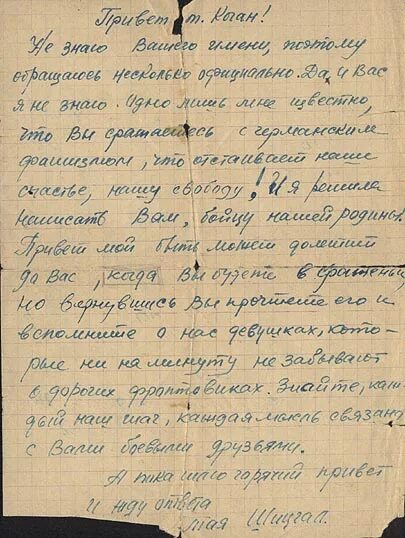 Привет т. Коган!
Не знаю Вашего имени, поэтому
обращаюсь несколько официально. Да, и Вас
я не знаю. Одно лишь мне известно,
что Вы сражаетесь с германским
фашизмом, что отстаивает наше
счастье, нашу свободу! И я решила
написать Вам, бойцу нашей родины.
Привет мой быть может долетит
до Вас, когда Вы будете в сраженьи,
но вернувшись Вы прочтете его и
вспомните о нас девушках, кото-
рые ни на минуту не забывают
о дорогих фронтовиках. Знайте, каж-
дый наш шаг, каждая мысль связана
с Вами боевыми друзьями.
А пока шлю горячий привет
и жду ответа
Мая Шицгал.